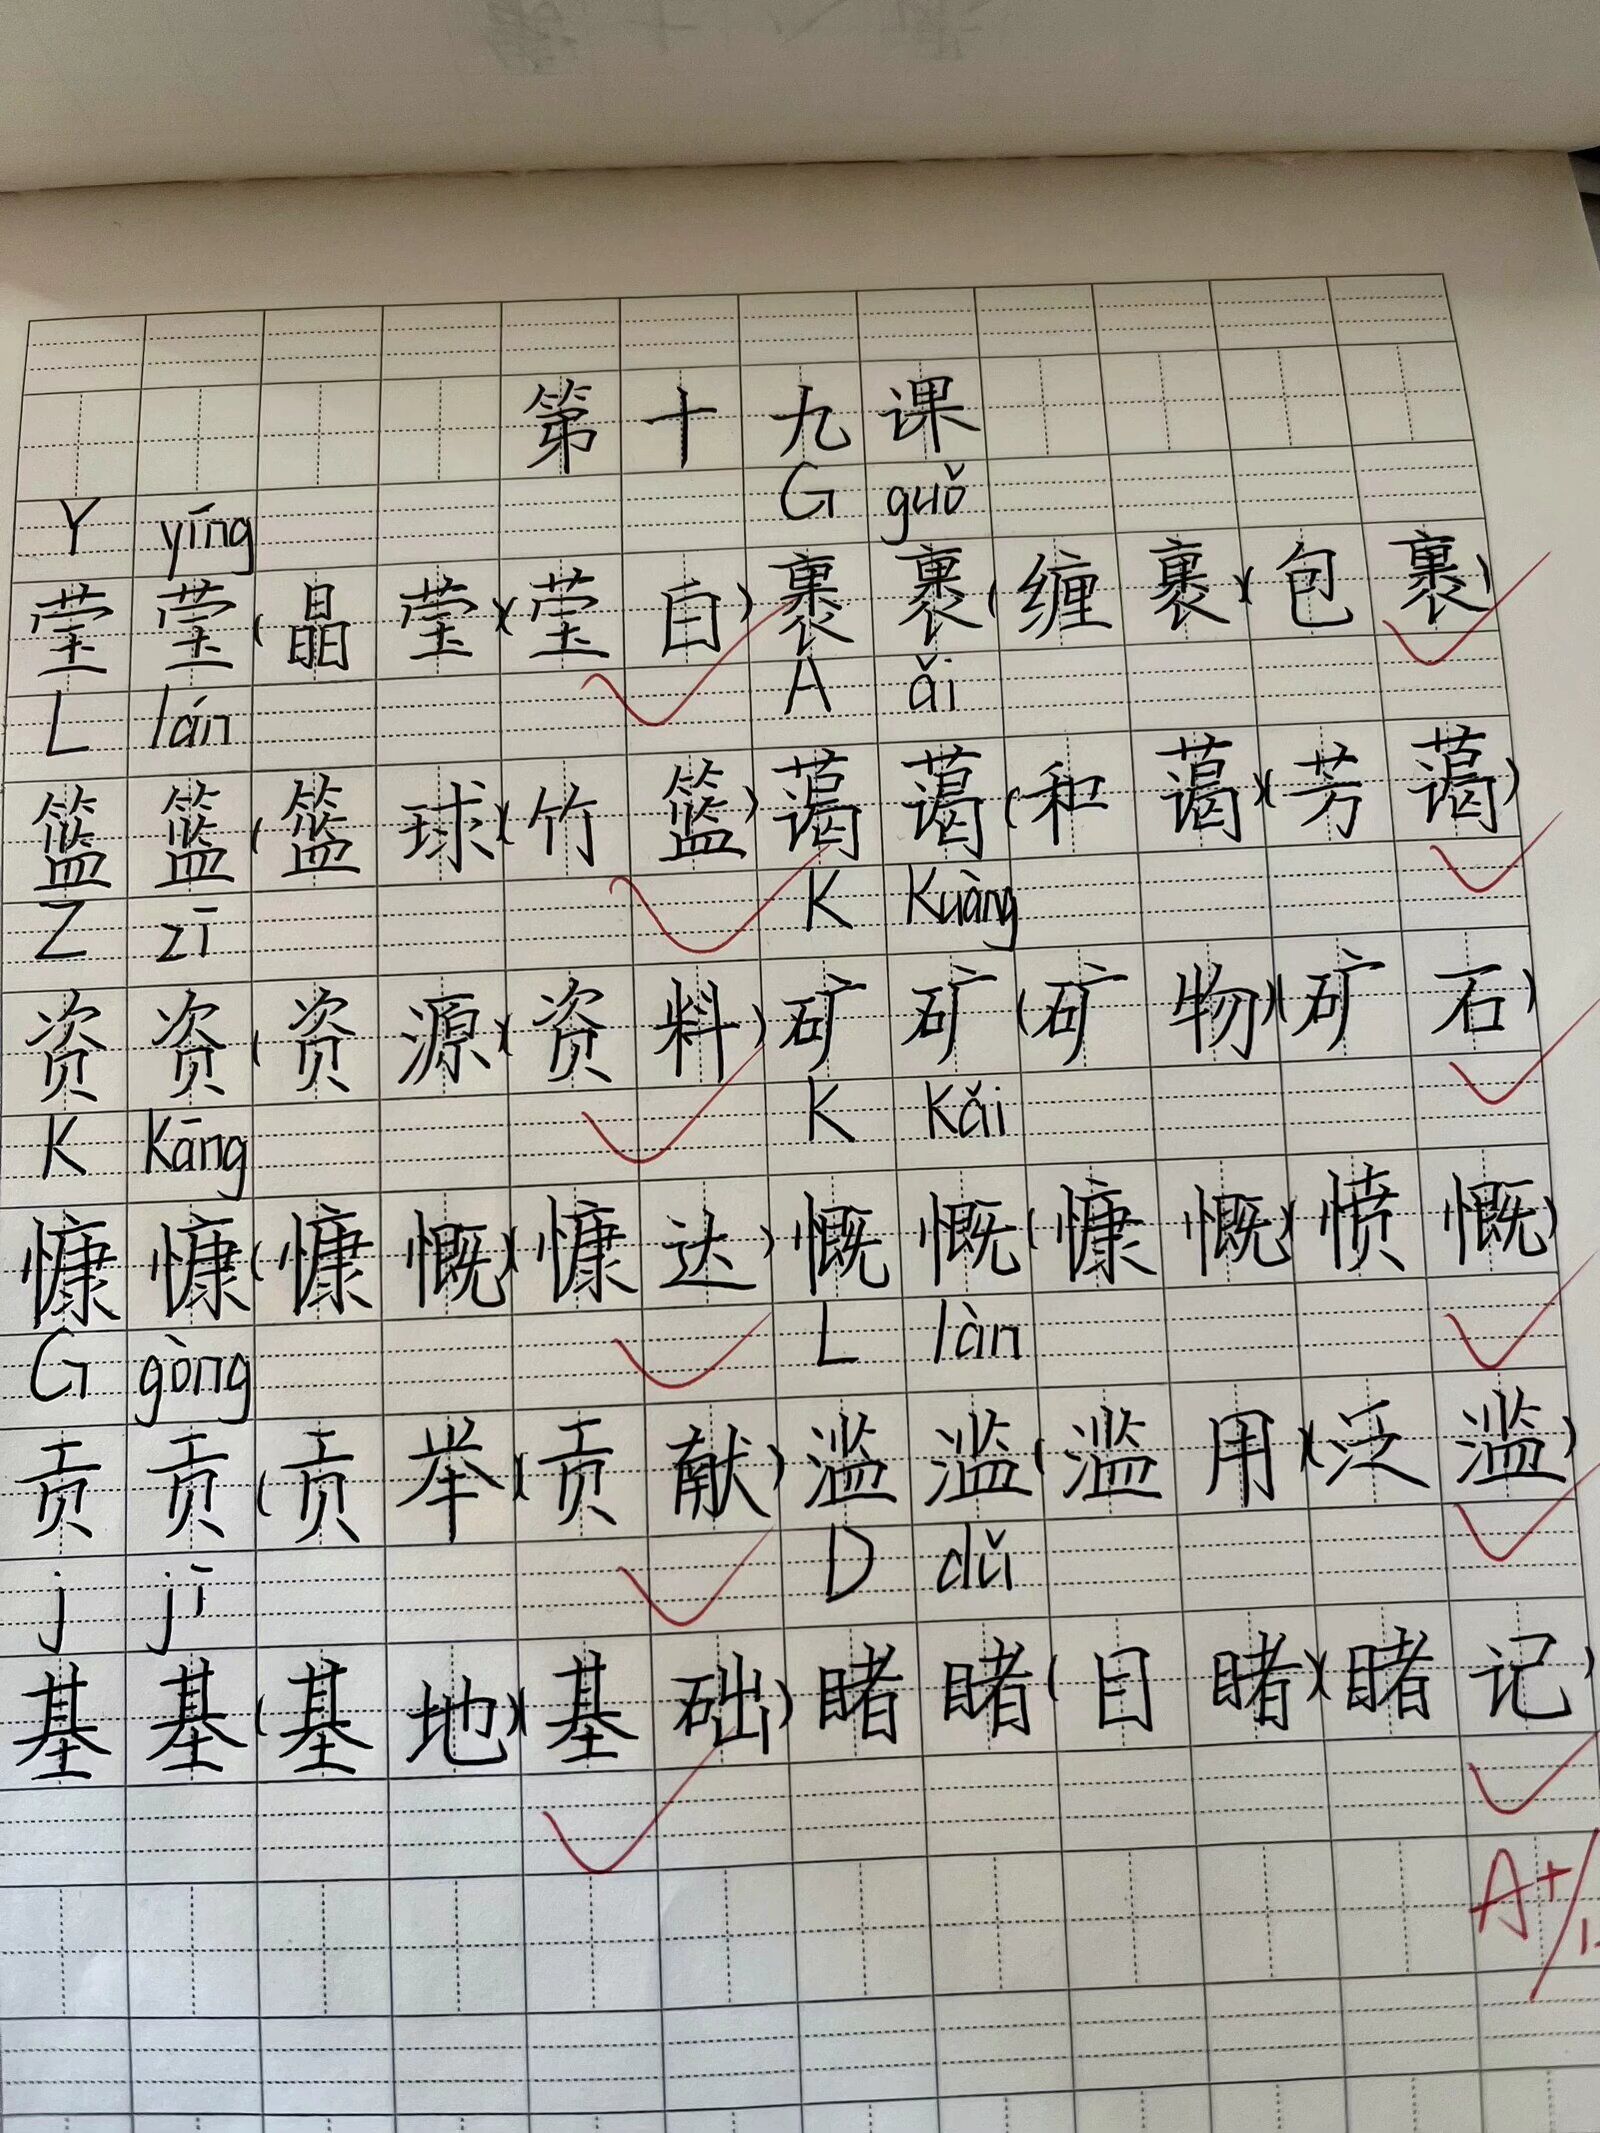 第十九课
Y yíng G guǒ
莹莹(晶莹)(莹白)裹裹(缠裹)(包裹)
L lán A ǎi
篮篮(篮球)(竹篮)蔼蔼(和蔼)(芳蔼)
Z zī K kuàng
资资(资源)(资料)矿矿(矿物)(矿石)
K kāng K kǎi
慷慷(慷慨)(慷达)慨慨(慷慨)(愤慨)
G gòng L làn
贡贡(贡举)(贡献)滥滥(滥用)(泛滥)
j jī D dǔ
基基(基地)(基础)睹睹(目睹)(睹记)
A+